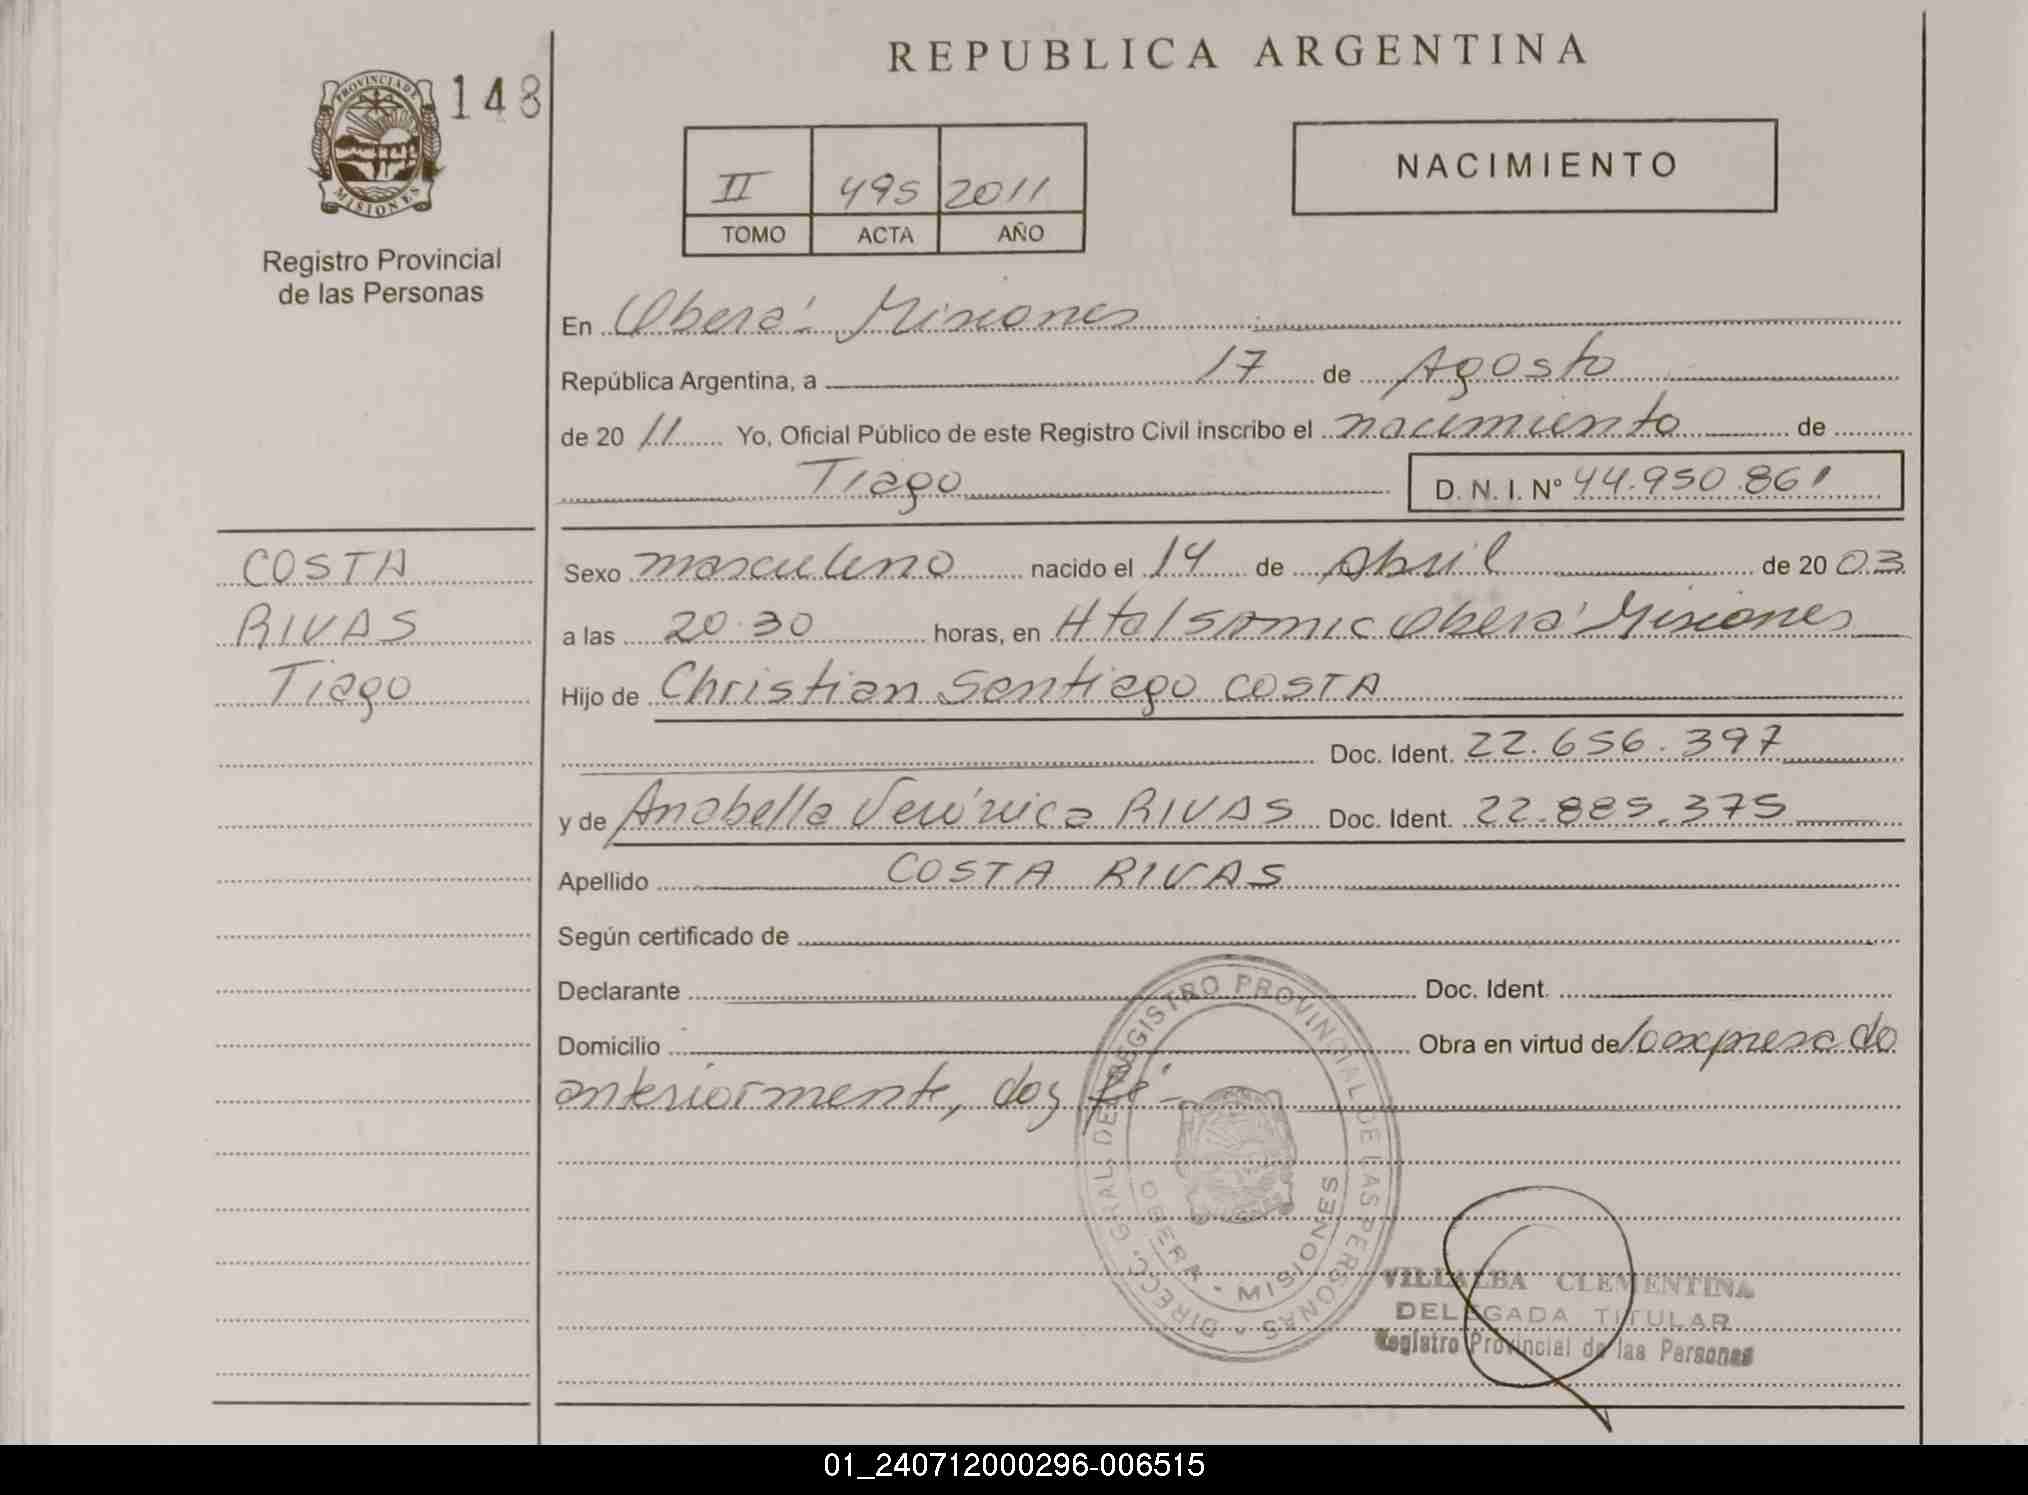 REPUBLICA ARGENTINA
PROVINCIA DE
MISIONES
148
Registro Provincial
de las Personas
II 495 2011
TOMO ACTA AÑO
NACIMIENTO
En Oberá Misiones
República Argentina, a 17 de Agosto
de 2011 Yo, Oficial Público de este Registro Civil inscribo el nacimiento de
Tiago D. N. I. Nº 44.950.861
COSTA
RIVAS
Tiago
Sexo masculino nacido el 14 de Abril de 2003
a las 20.30 horas, en Htal SAMIC Oberá Misiones
Hijo de Christian Santiago COSTA
Doc. Ident. 22.656.397
y de Anabella Verónica RIVAS Doc. Ident. 22.885.375
Apellido COSTA RIVAS
Según certificado de
Declarante Doc. Ident.
Domicilio Obra en virtud de lo expresado
anteriormente, doy fé-
DIRECC. GRAL. DEL REGISTRO PROVINCIAL DE LAS PERSONAS
OBERA - MISIONES
VILLALBA CLEMENTINA
DELEGADA TITULAR
Registro Provincial de las Personas
01_240712000296-006515